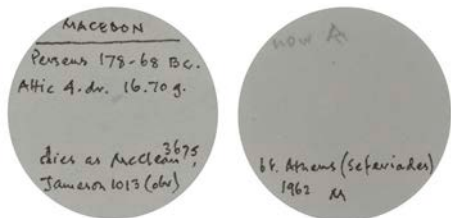 MACEDON
Perseus 178-68 BC.
Attic 4.dr. 16.70 g.
dies as McClean 3675,
Jameson 1013 (obv)
now
bt. Athens (Seferiades)
1962 M